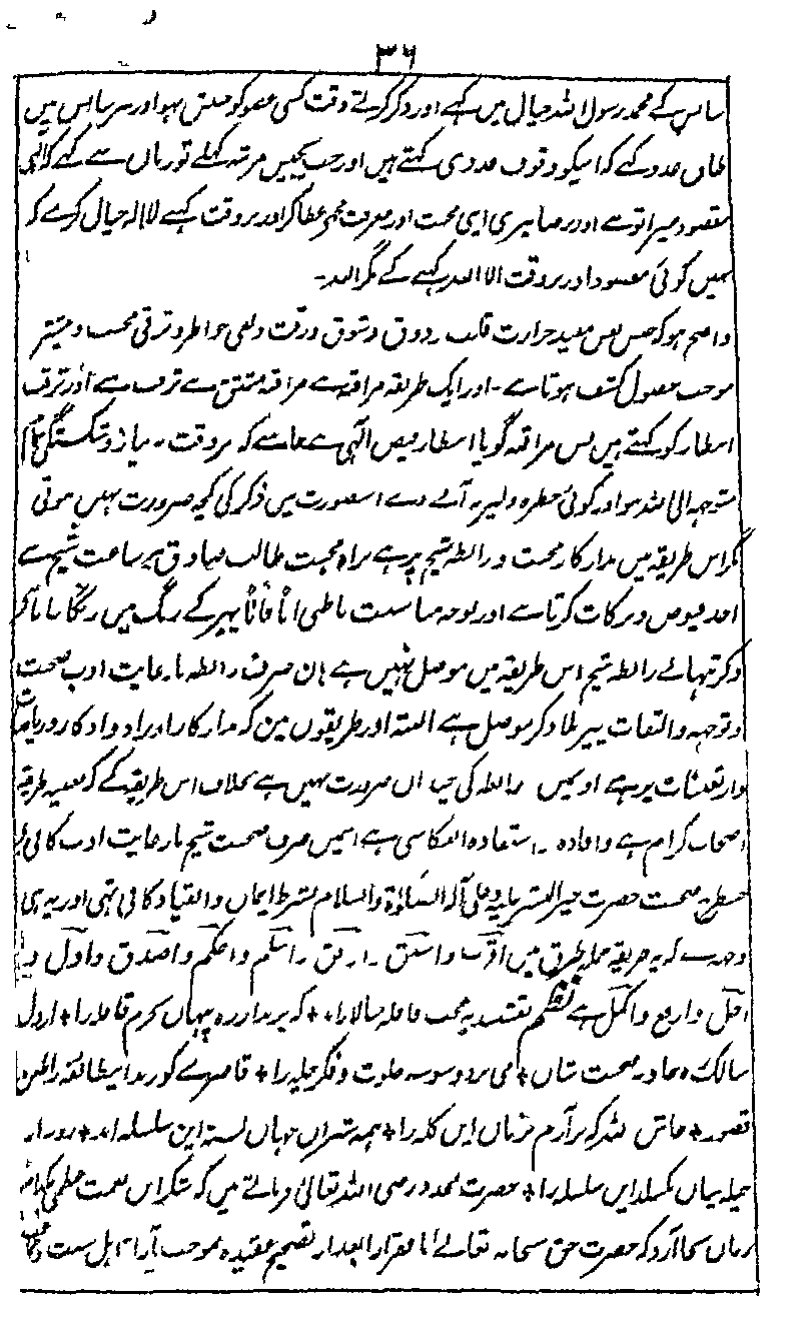 ۳۶
سانس کے محمد رسول اللہ خیال میں کہے اور ذکر کرتے وقت کسی عضو کو جنبش نہو اور ہر سانس میں
طاق عدد کہے کہ اسیکو وقوف عددی کہتے ہیں اور جب پچیس مرتبہ کہلے تو زبان سے کہے کہ الٰہی
مقصود میرا تو ہے اور رضا تیری اپنی محبت اور معرفت مجھے عطا کر اور بر وقت کہنے لا الہ خیال کرے کہ
نہیں کوئی مقصود اور بر وقت الا اللہ کہنے کے مگر اللہ۔
واضح ہو کہ حبس نفس مفید حرارت قلب و ذوق و شوق و رقت و نفی خواطر و ترقی محبت و بیشتر
موجب حصول کشف ہوتا ہے۔ اور ایک طریقہ مراقبہ ہے مراقبہ مشتق ہے ترقب سے اور ترقب
انتظار کو کہتے ہیں پس مراقبہ گویا انتظار فیض الٰہی ہے چاہئے کہ ہر وقت بہ نیاز و شکستگی تمام
متوجہ الی اللہ ہو اور کوئی خطرہ دلپر نہ آنے دے اسصورت میں ذکر کی کچھ ضرورت نہیں ہوتی
مگر اس طریقہ میں مدار کار محبت و رابطہ شیخ پر ہے براہ محبت طالب صادق ہر ساعت شیخ سے
اخذ فیوض و برکات کرتا ہے اور بوجہ مناسبت باطنی آناً فاناً پیر کے رنگ میں رنگا جاتا
ذکر تنہا بے رابطہ شیخ اس طریقہ میں موصل نہیں ہے ہان صرف رابطہ با رعایت ادب صحبت
و توجہ و التفات پیر بلا ذکر موصل ہے البتہ اور طریقوں مین کہ مدار کار اوراد و اذکار و ریاضات
و اربعینات پر ہے اونمیں رابطہ کی چنداں ضرورت نہیں ہے بخلاف اس طریقہ کے کہ بعینہ طریقہ
اصحاب کرام ہے و افادہ و استفادہ انعکاسی ہے اسمیں صرف صحبت شیخ با رعایت ادب کافی ہے
جسطرح صحبت حضرت خیر البشر علیہ و علی آلہ الصلوٰۃ والسلام بشرط ایمان و انقیاد کافی تہی اور یہ ہی
وجہ ہے کہ یہ طریقہ جملہ طرق میں اقرب و اسبق و اوفق و اسلم و احکم و اصدق و ادل و
اجل و ارفع و اکمل ہے نظم نقشبندیہ عجب قافلہ سالارانند ٭ کہ برند از رہ پنہاں بحرم قافلہ را ٭ از دل
سالک رہ جاذبہ صحبت شاں ٭ می برد وسوسہ خلوت و فکر چلہ را ٭ قاصرے گر زند این طائفہ را طعن
قصور ٭ حاش للہ کہ برآرم بزباں ایں گلہ را ٭ ہمہ شیراں جہاں بستہ این سلسلہ اند ٭ روبہ از
حیلہ چساں بگسلد ایں سلسلہ را ٭ حضرت مجدد رضی اللہ تعالیٰ فرماتے ہیں کہ شکر اس نعمت عظمی کا
زبان بجا آرد کہ حضرت حق سبحانہ تعالےٰ ما فقرا را بعد از تصحیح عقیدہ بموجب آراء اہل سنت و